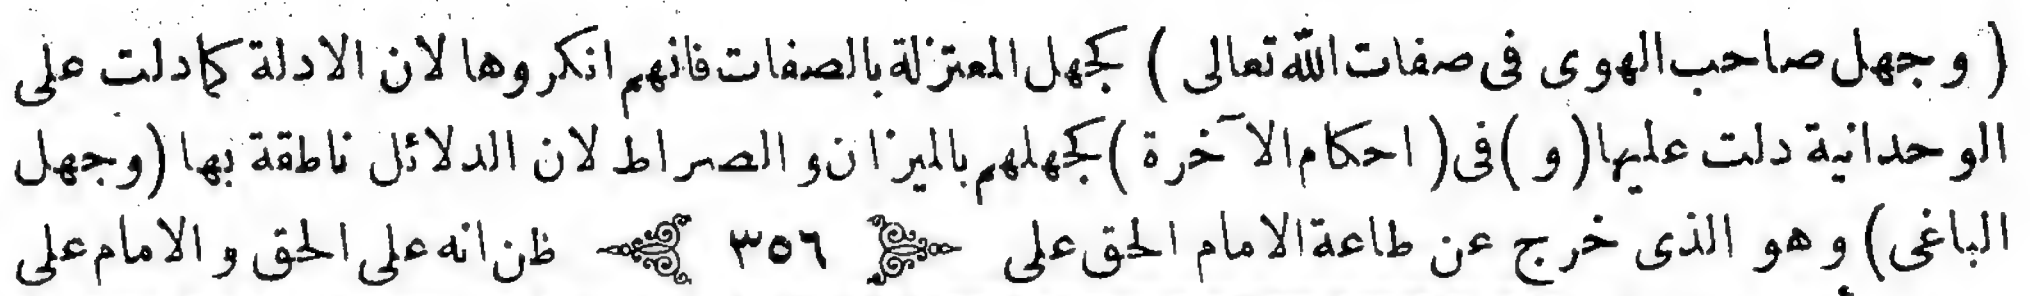 ( وجهل صاحب الهوى فى صفات الله تعالى ) كجهل المعتزلة بالصفات فانهم انكروها لان الادلة كما دلت على
الوحدانية دلت عليها ( و ) فى ( احكام الآخرة ) كجهلهم بالميزان و الصراط لان الدلائل ناطقة بها ( وجهل
الباغى ) و هو الذى خرج عن طاعة الامام الحق على ٣٥٦ ظن انه على الحق و الامام على